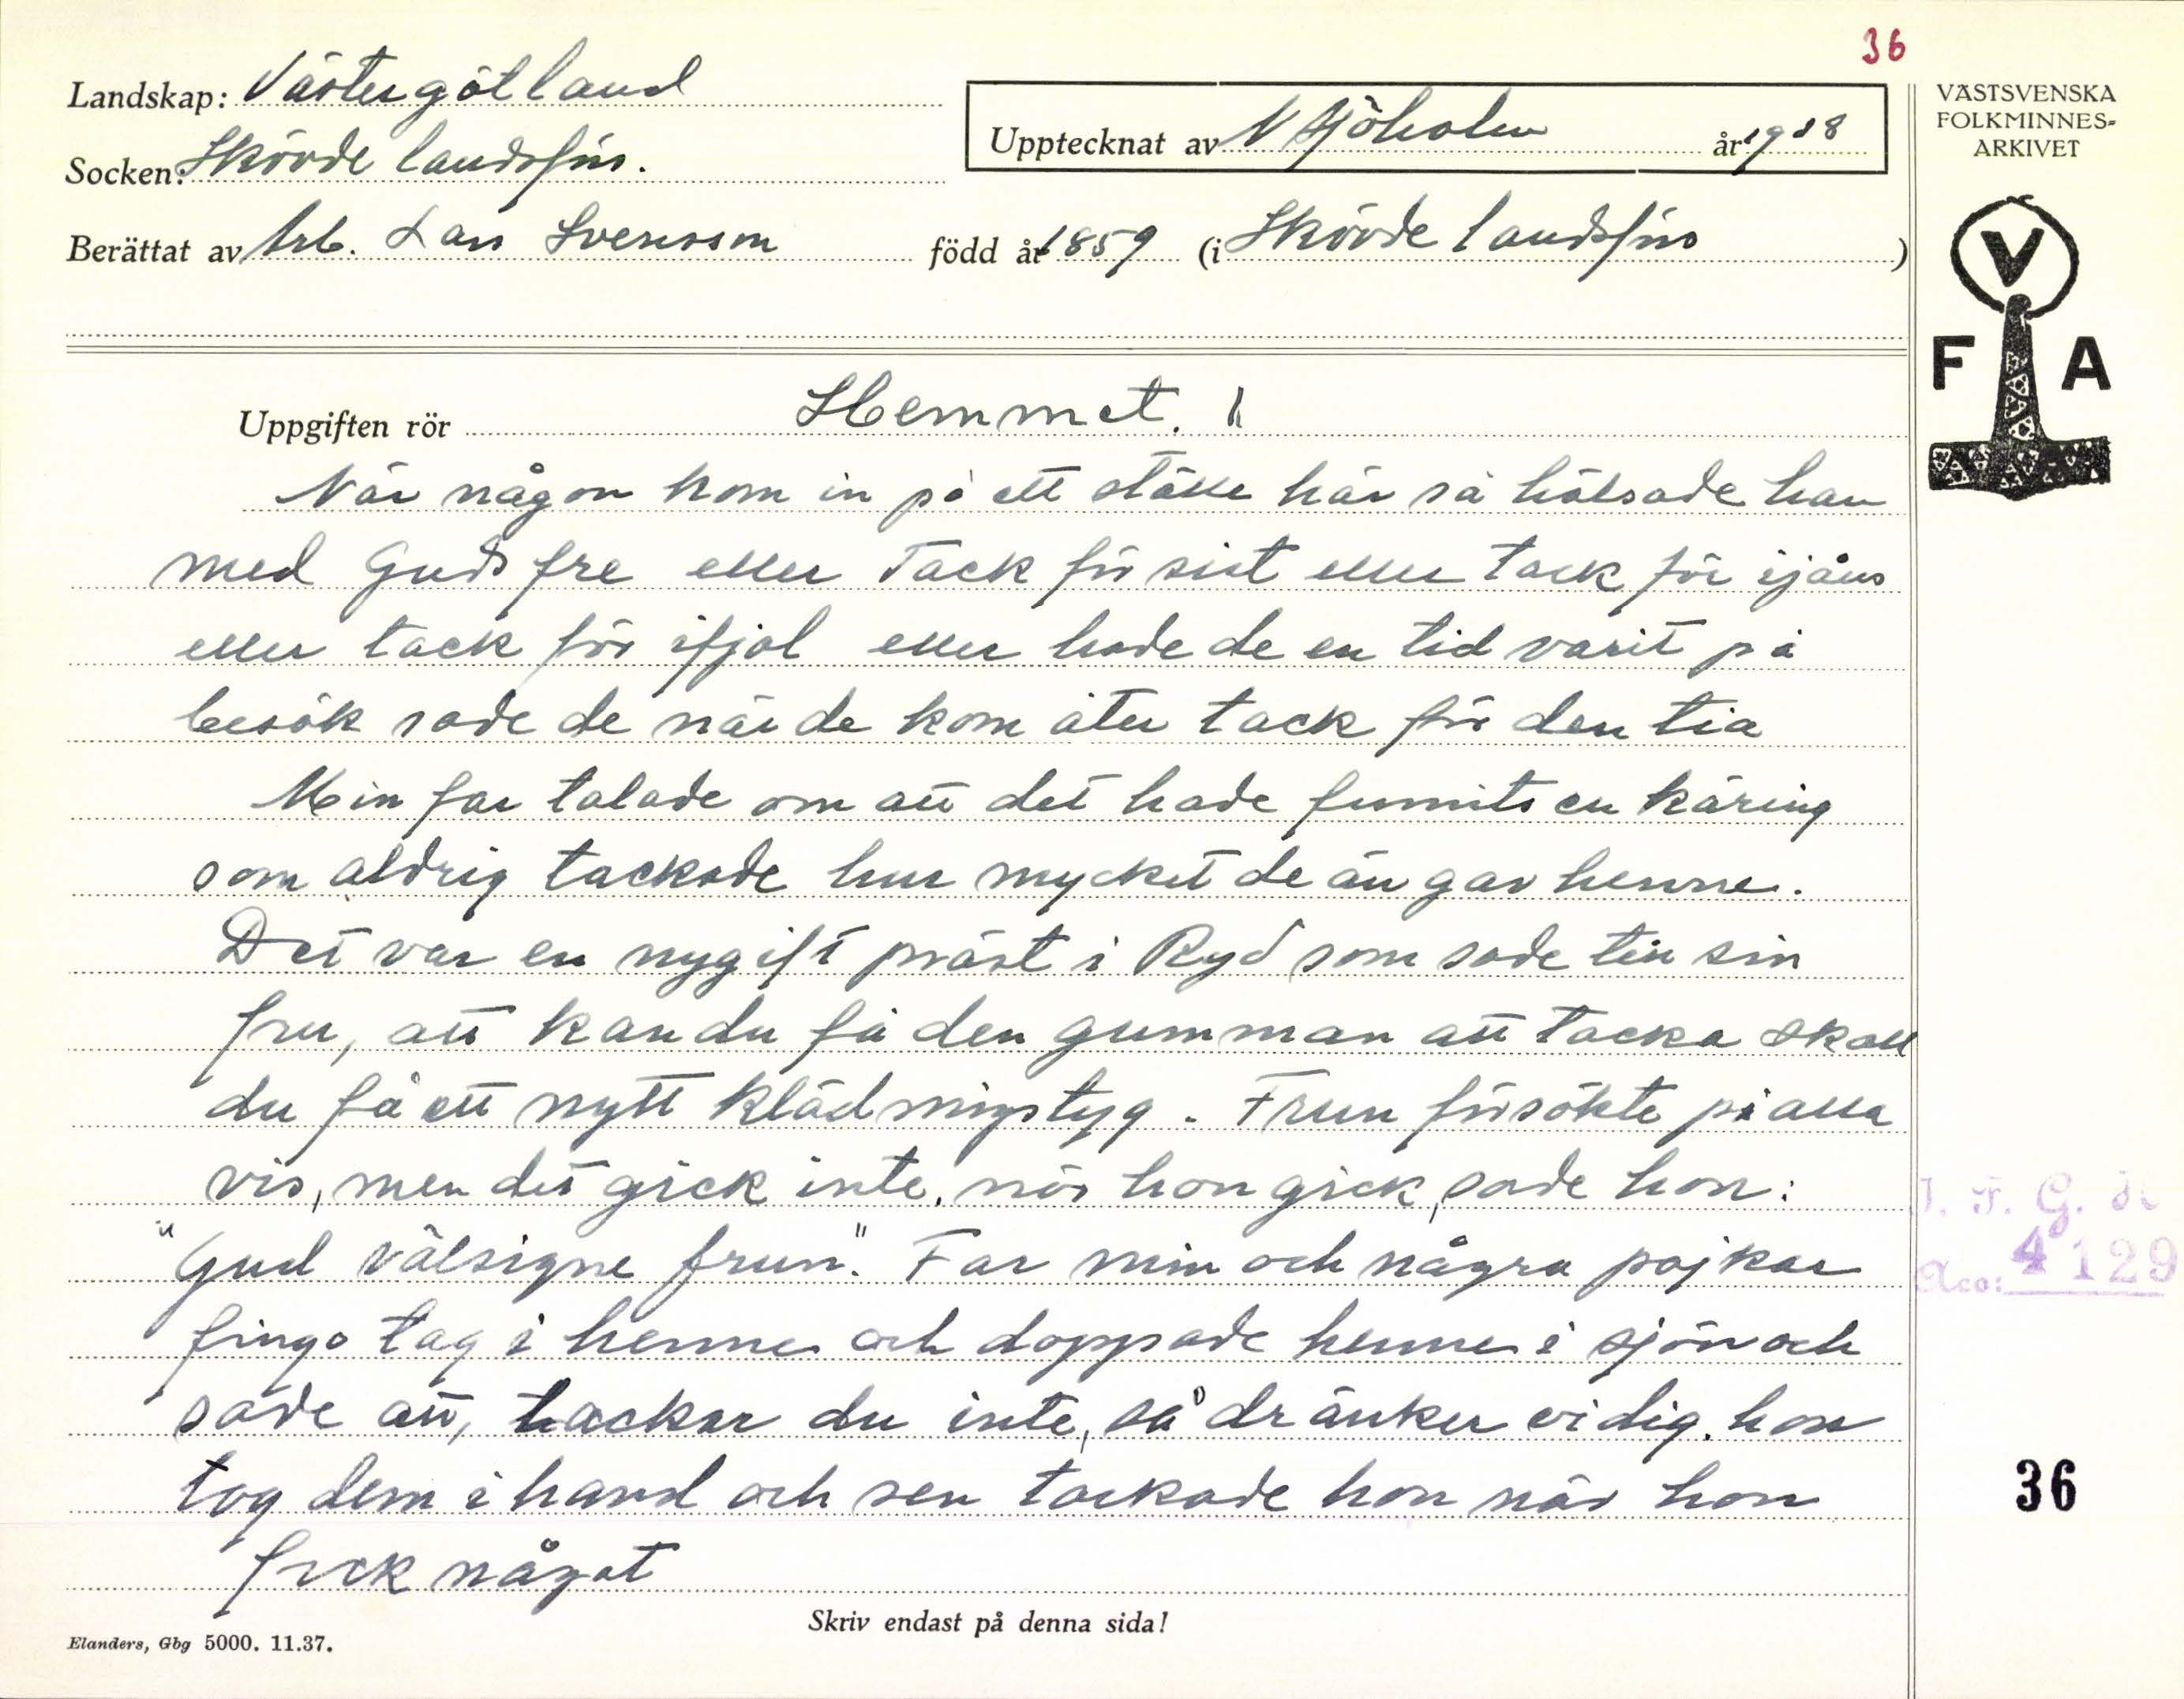 36
Landskap: Västergötland
Socken: Skövde landsförs.
Upptecknat av N Sjöholm år 1938
Berättat av Arb. Lars Svensson född år 1859 (i Skövde landsförs)
VÄSTSVENSKA
FOLKMINNES-
ARKIVET
V
F A
Uppgiften rör Hemmet.
När någon kom in på ett ställe här så hälsade han
med Guds fre eller Tack för sist eller tack för ijåns
eller tack för ifjol eller hade de en tid varit på
besök sade de när de kom åter tack för den tia
Min far talade om att det hade funnits en käring
som aldrig tackade hur mycket de än gav henne.
Det var en nygift präst i Ryd som sade till sin
fru, att kan du få den gumman att tacka skall
du få ett nytt klädningstyg. Frun försökte på alla
vis, men det gick inte, när hon gick, sade hon:
"Gud välsigne frun". Far min och några pojkar
fingo tag i henne och doppade henne i sjön och
sade att, tackar du inte, så dränker vi dig. hon
tog dem i hand och sen tackade hon när hon
fick något
I. F. G. H.
Acc: 4129
36
Skriv endast på denna sida!
Elanders, Gbg 5000. 11.37.